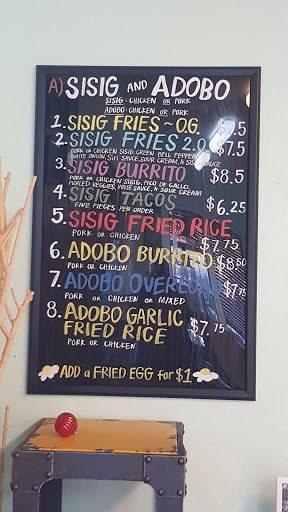 A) SISIG AND ADOBO
SISIG: CHICKEN OR PORK
ADOBO: CHICKEN OR PORK
1. SISIG FRIES ~ O.G. $7.5
2. SISIG FRIES 2.0 $7.5
PORK OR CHICKEN SISIG, GREEN BELL PEPPER,
WHITE ONION, SIR SAUCE, SOUR CREAM, & SISIG SAUCE
3. SISIG BURRITO $8.5
PORK OR CHICKEN SISIG, PICO DE GALLO,
PICKLED VEGGIES, HOUSE SAUCE, & SOUR CREAM
4. SISIG TACOS $6.25
FIVE PIECES PER ORDER
5. SISIG FRIED RICE $7.75
PORK OR CHICKEN
6. ADOBO BURRITO $8.50
PORK OR CHICKEN
7. ADOBO $7.75
PORK OR CHICKEN OR MIXED
8. ADOBO GARLIC
FRIED RICE $7.75
PORK OR CHICKEN
ADD a FRIED EGG for $1